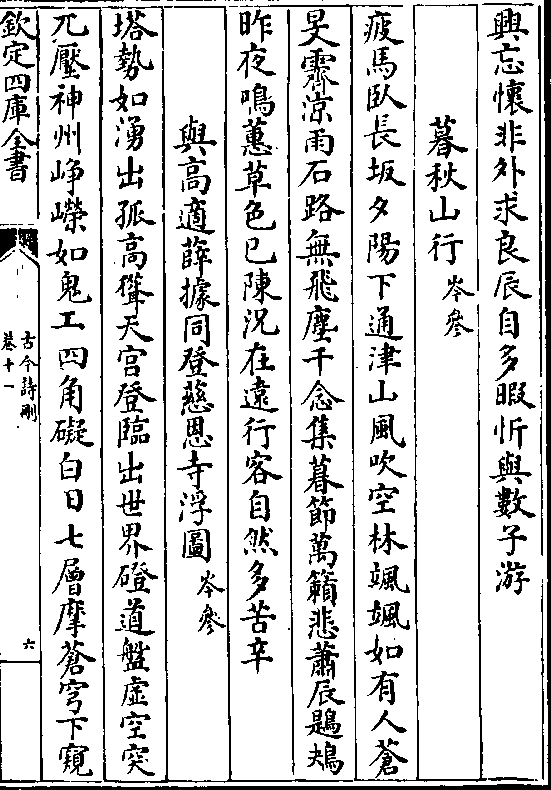 興忘懷非外求良辰自多暇忻與數子游
暮秋山行 岑參
疲馬臥長坂夕陽下通津山風吹空林颯颯如有人蒼
旻霽涼雨石路無飛塵千念集暮節萬籟悲蕭辰鶗鴂
昨夜鳴蕙草色已陳況在遠行客自然多苦辛
與高適薛據同登慈恩寺浮圖 岑參
塔勢如湧出孤高聳天宮登臨出世界磴道盤虛空突
兀壓神州崢嶸如鬼工四角礙白日七層摩蒼穹下窺
欽定四庫全書
古今詩刪
卷十一
六